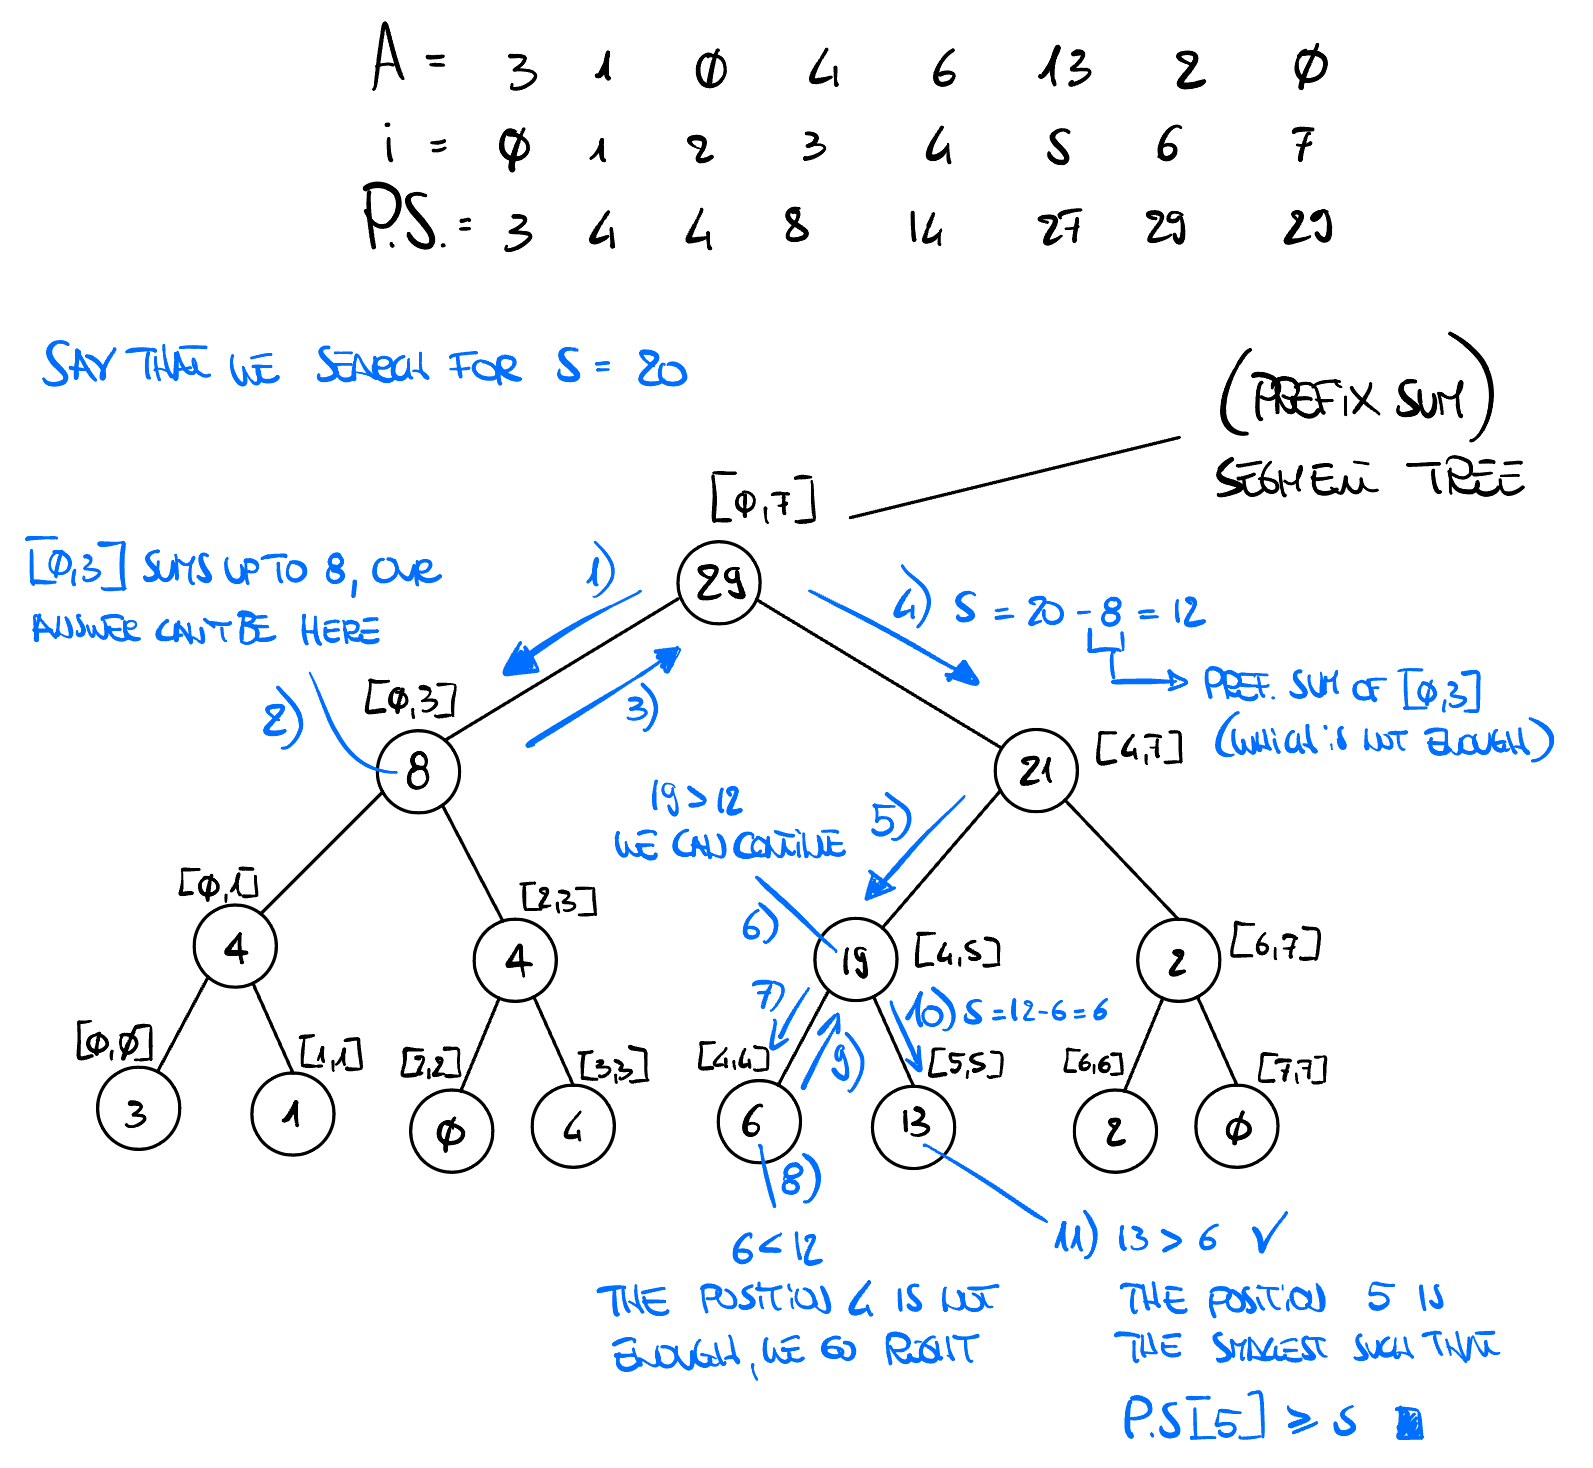 A = 3 1 0 4 6 13 2 0
i = 0 1 2 3 4 5 6 7
P.S. = 3 4 4 8 14 27 29 29
SAY THAT WE SEARCH FOR S = 20
(PREFIX SUM)
SEGMENT TREE
[0,7]
29
[0,3] SUMS UP TO 8, OUR
ANSWER CAN'T BE HERE
1)
4) S = 20 - 8 = 12
PREF. SUM OF [0,3]
(WHICH IS NOT ENOUGH)
2)
3)
[0,3]
8
[4,7]
21
19 > 12
WE CAN CONTINUE
5)
[0,1]
4
[2,3]
4
6)
19
[4,5]
2
[6,7]
7)
9)
10) S = 12 - 6 = 6
[0,0]
3
[1,1]
1
[2,2]
0
[3,3]
4
[4,4]
6
[5,5]
13
[6,6]
2
[7,7]
0
8)
6 < 12
THE POSITION 4 IS NOT
ENOUGH, WE GO RIGHT
11) 13 > 6 ✓
THE POSITION 5 IS
THE SMALLEST SUCH THAT
P.S[5] ≥ S